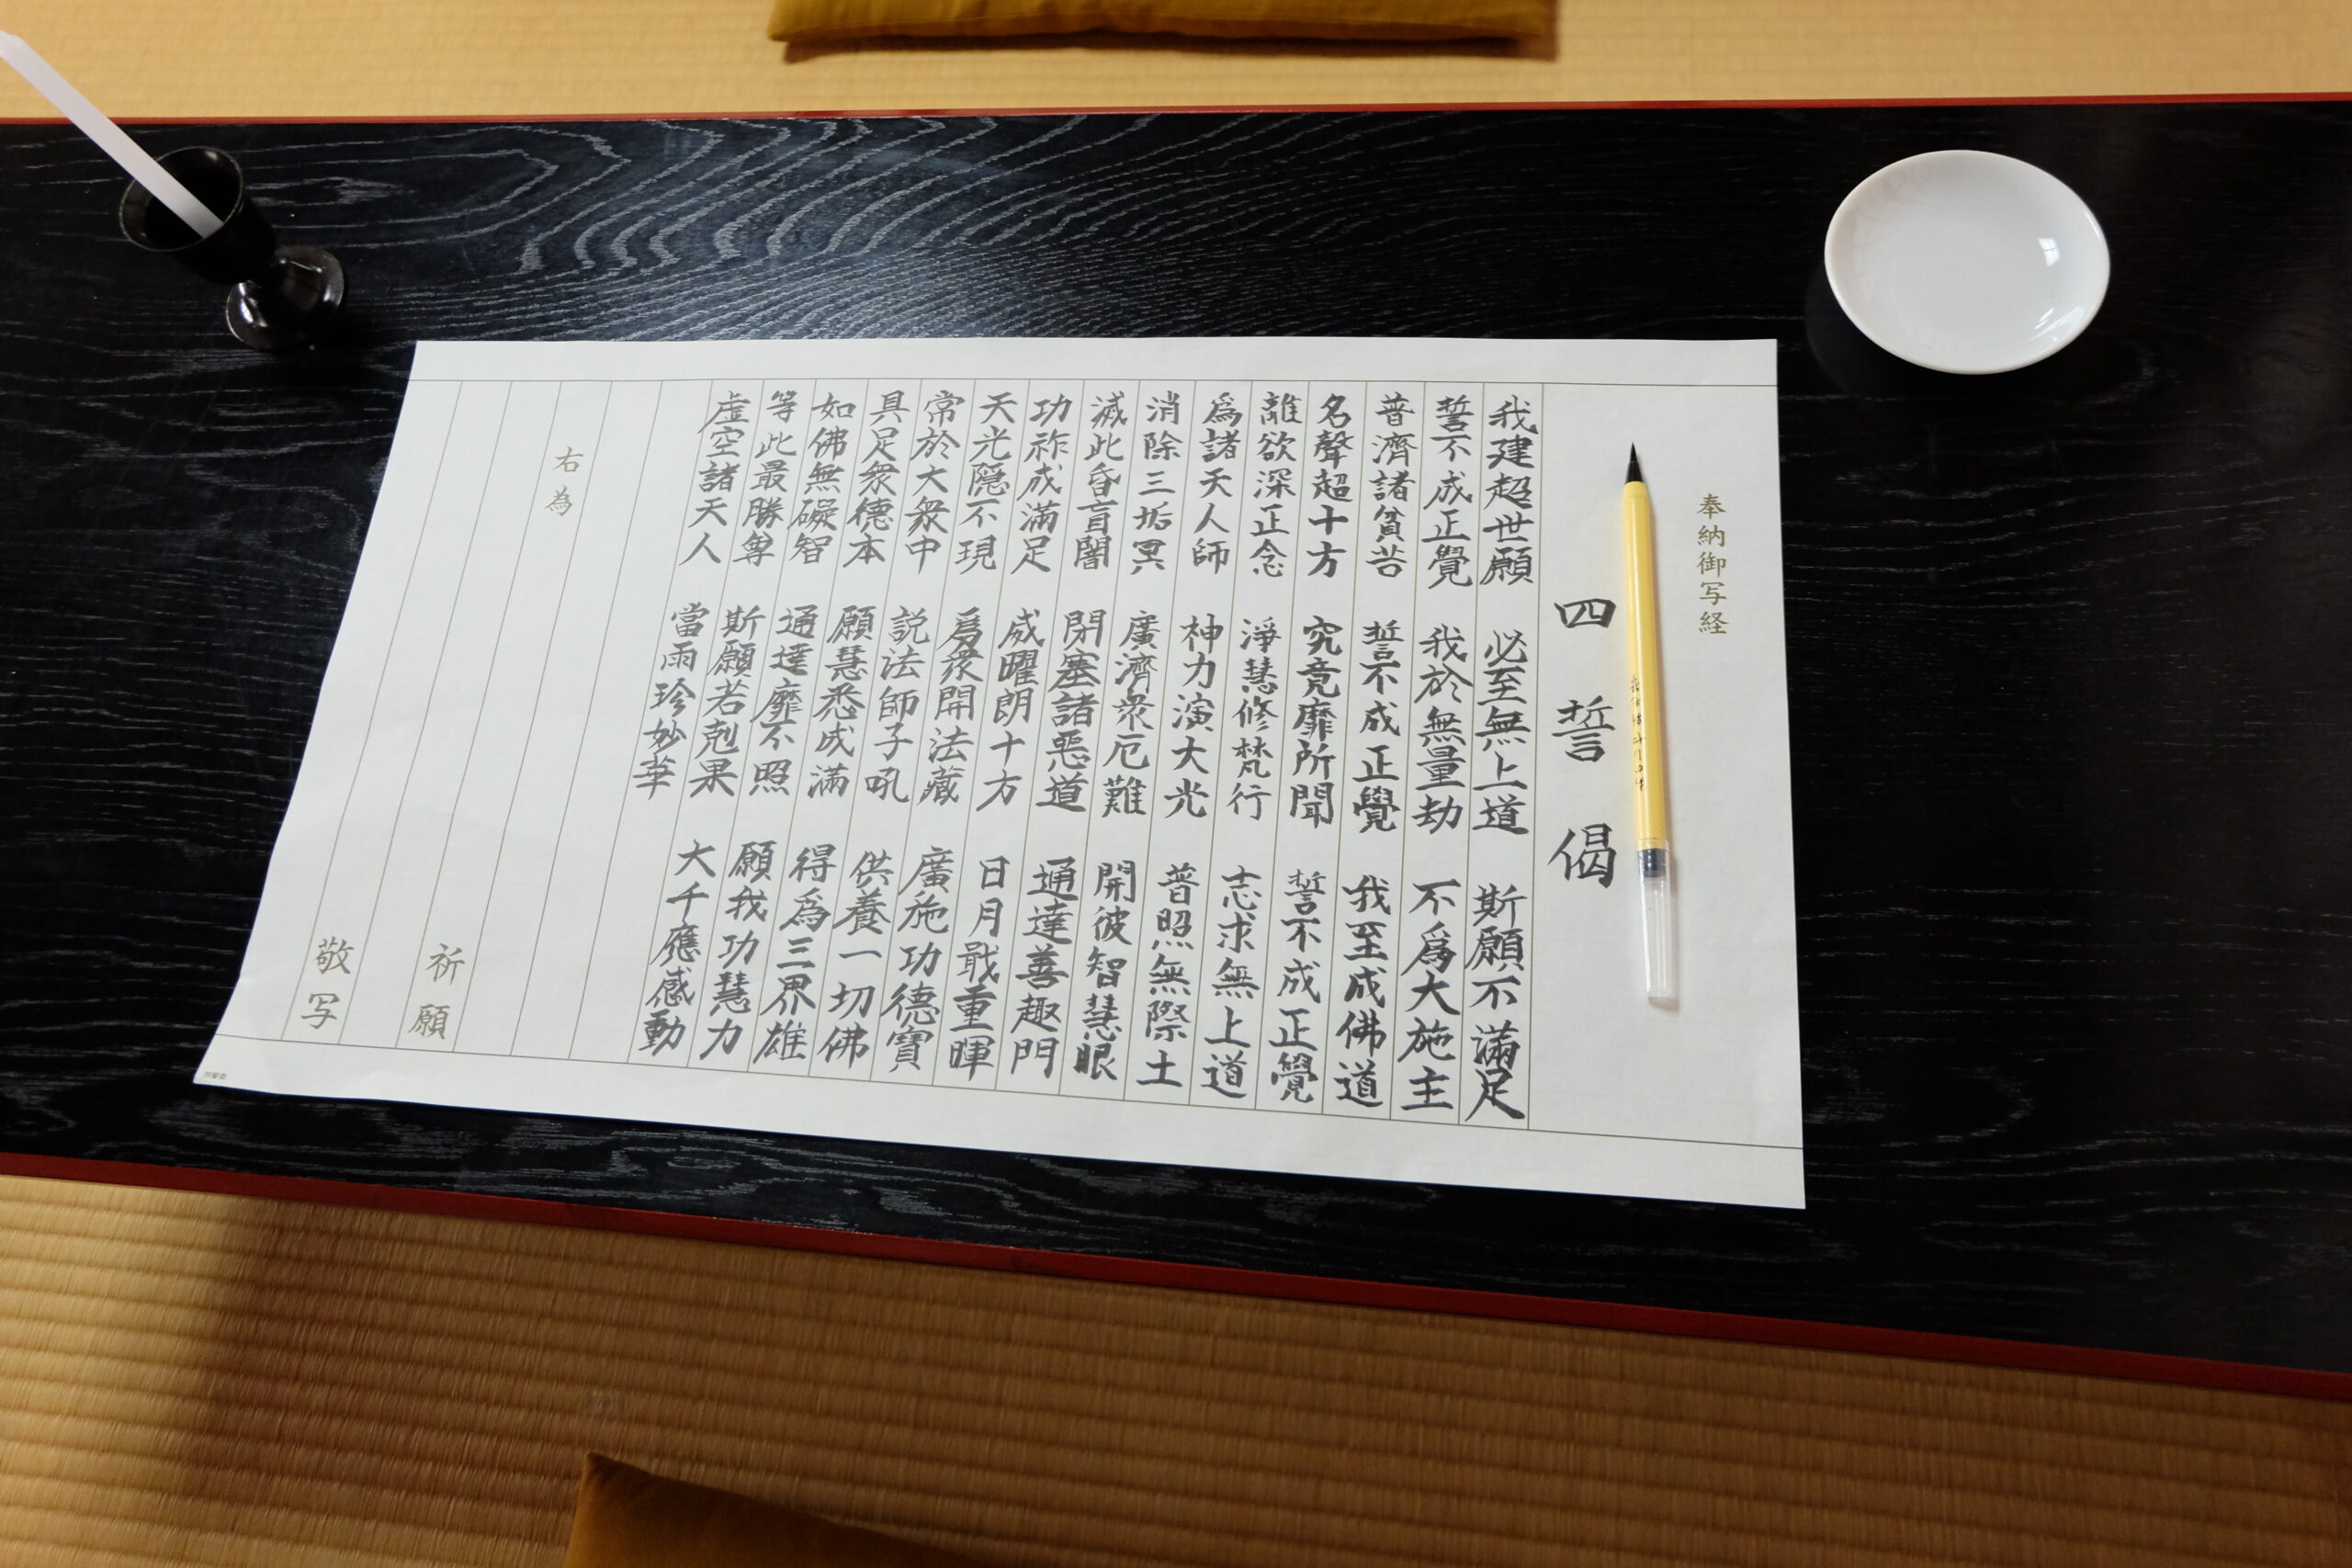 奉納御写経
四誓偈
我建超世願 必至無上道 斯願不滿足
誓不成正覺 我於無量劫 不爲大施主
普濟諸貧苦 誓不成正覺 我至成佛道
名聲超十方 究竟靡所聞 誓不成正覺
離欲深正念 淨慧修梵行 志求無上道
爲諸天人師 神力演大光 普照無際土
消除三垢冥 廣濟衆厄難 開彼智慧眼
滅此昏盲闇 閉塞諸惡道 通達善趣門
功祚成滿足 威曜朗十方 日月戢重暉
天光隱不現 爲衆開法藏 廣施功德寶
常於大衆中 説法師子吼 供養一切佛
具足衆德本 願慧悉成滿 得爲三界雄
如佛無礙智 通達靡不照 願我功慧力
等此最勝尊 斯願若剋果 大千應感動
虛空諸天人 當雨珍妙華
右為
祈願
敬写